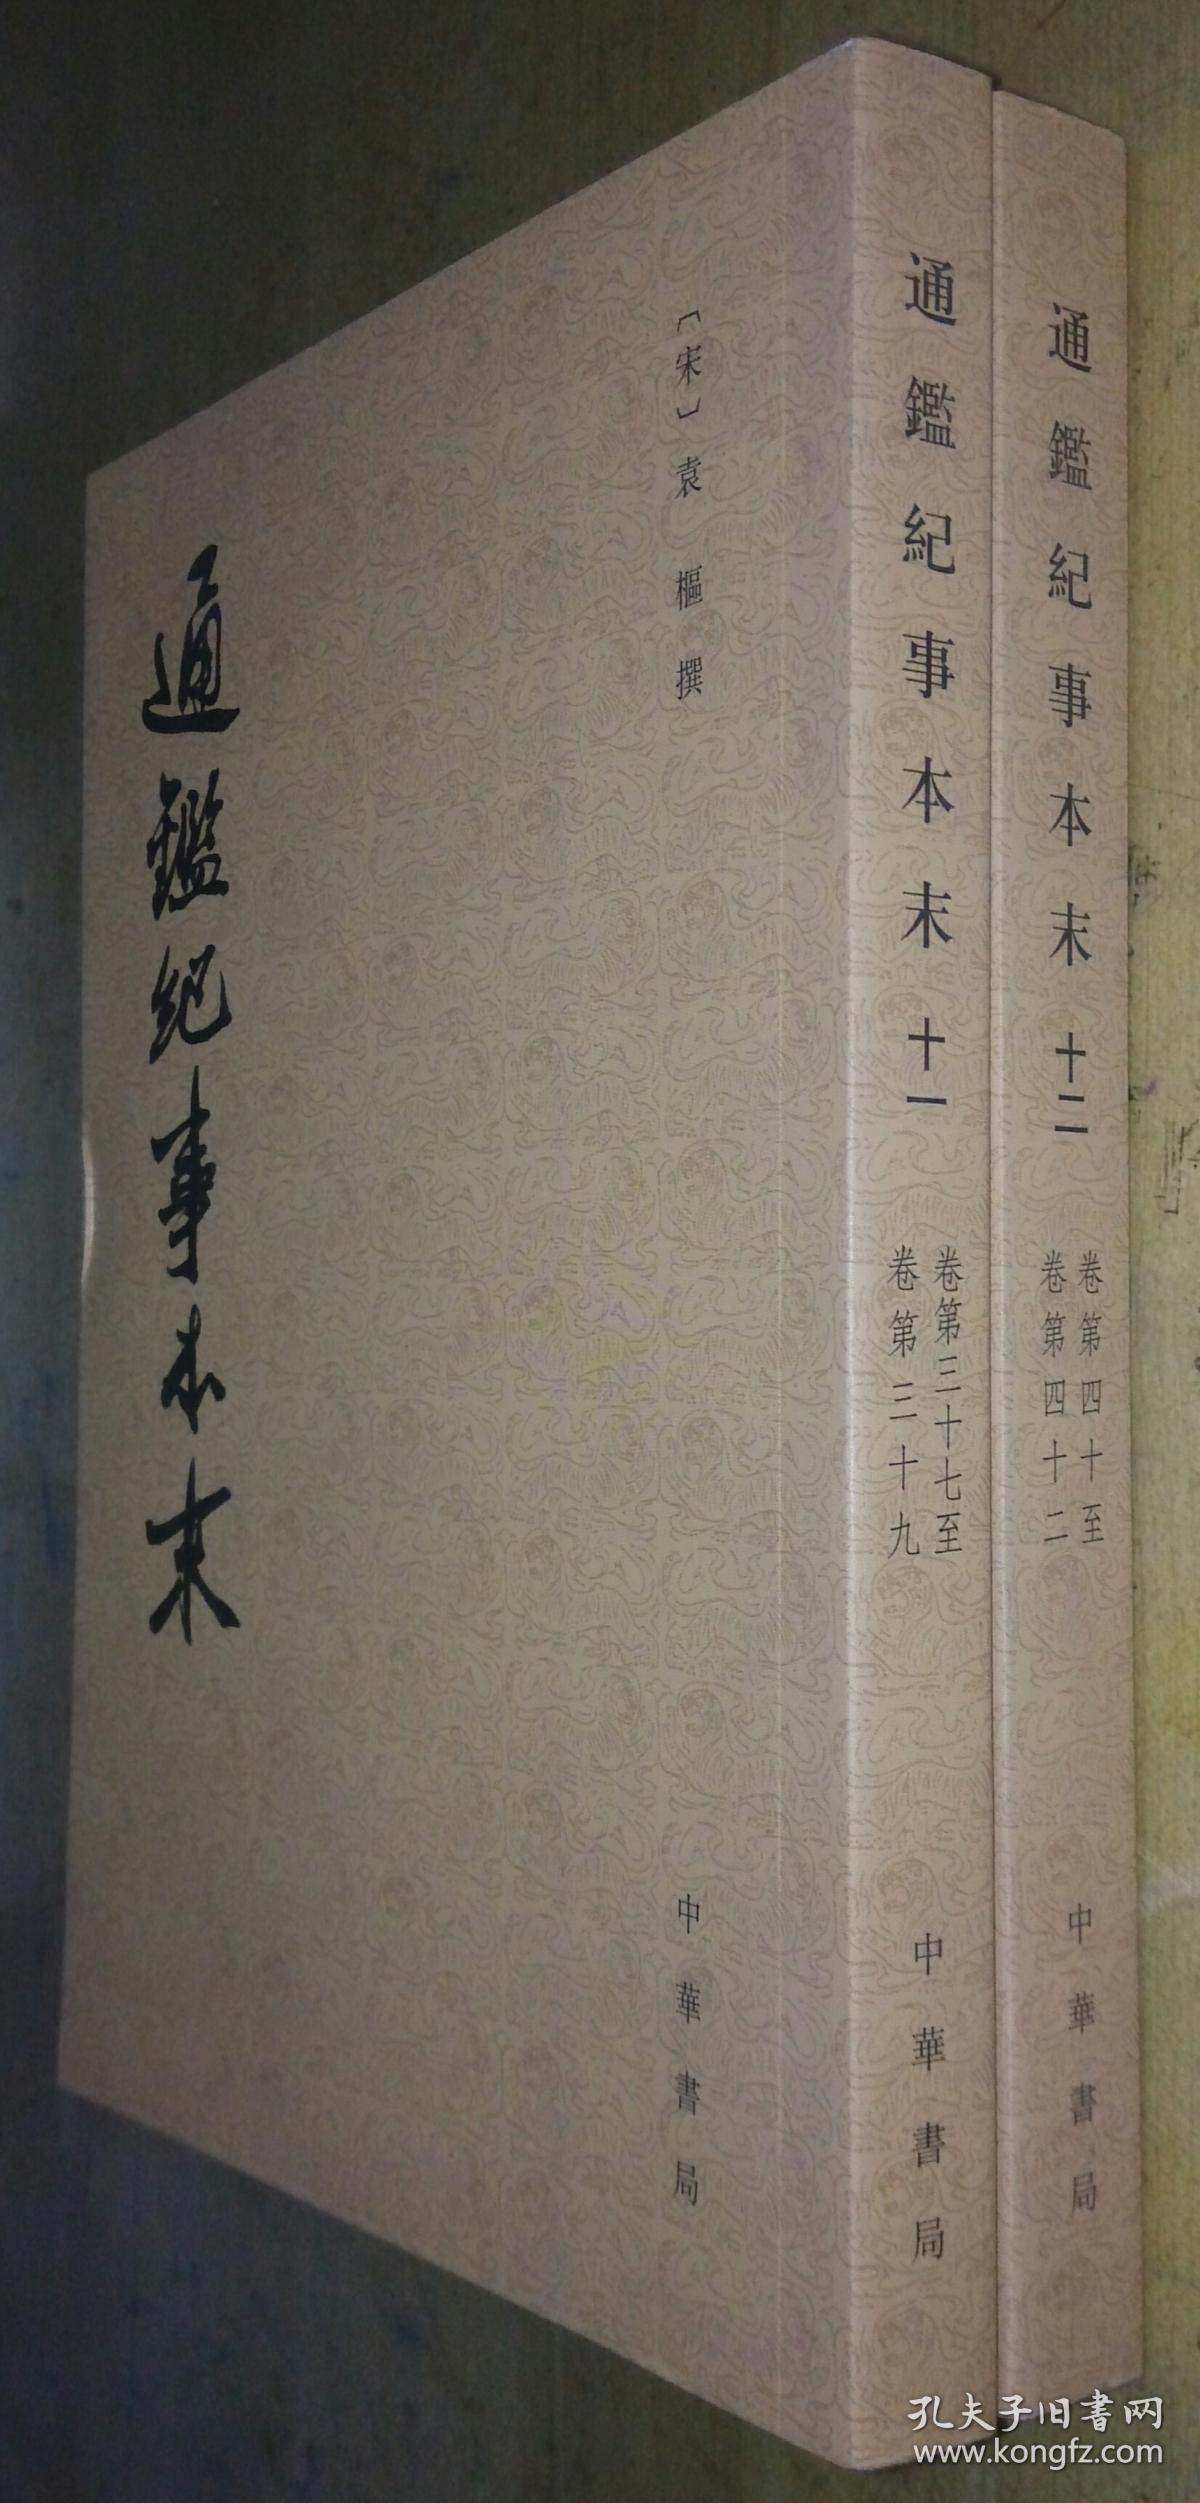 通鑑紀事本末
〔宋〕袁樞撰
中華書局
通鑑紀事本末 十一
卷第三十七至
卷第三十九
中華書局
通鑑紀事本末 十二
卷第四十至
卷第四十二
中華書局
孔夫子旧书网
www.kongfz.com